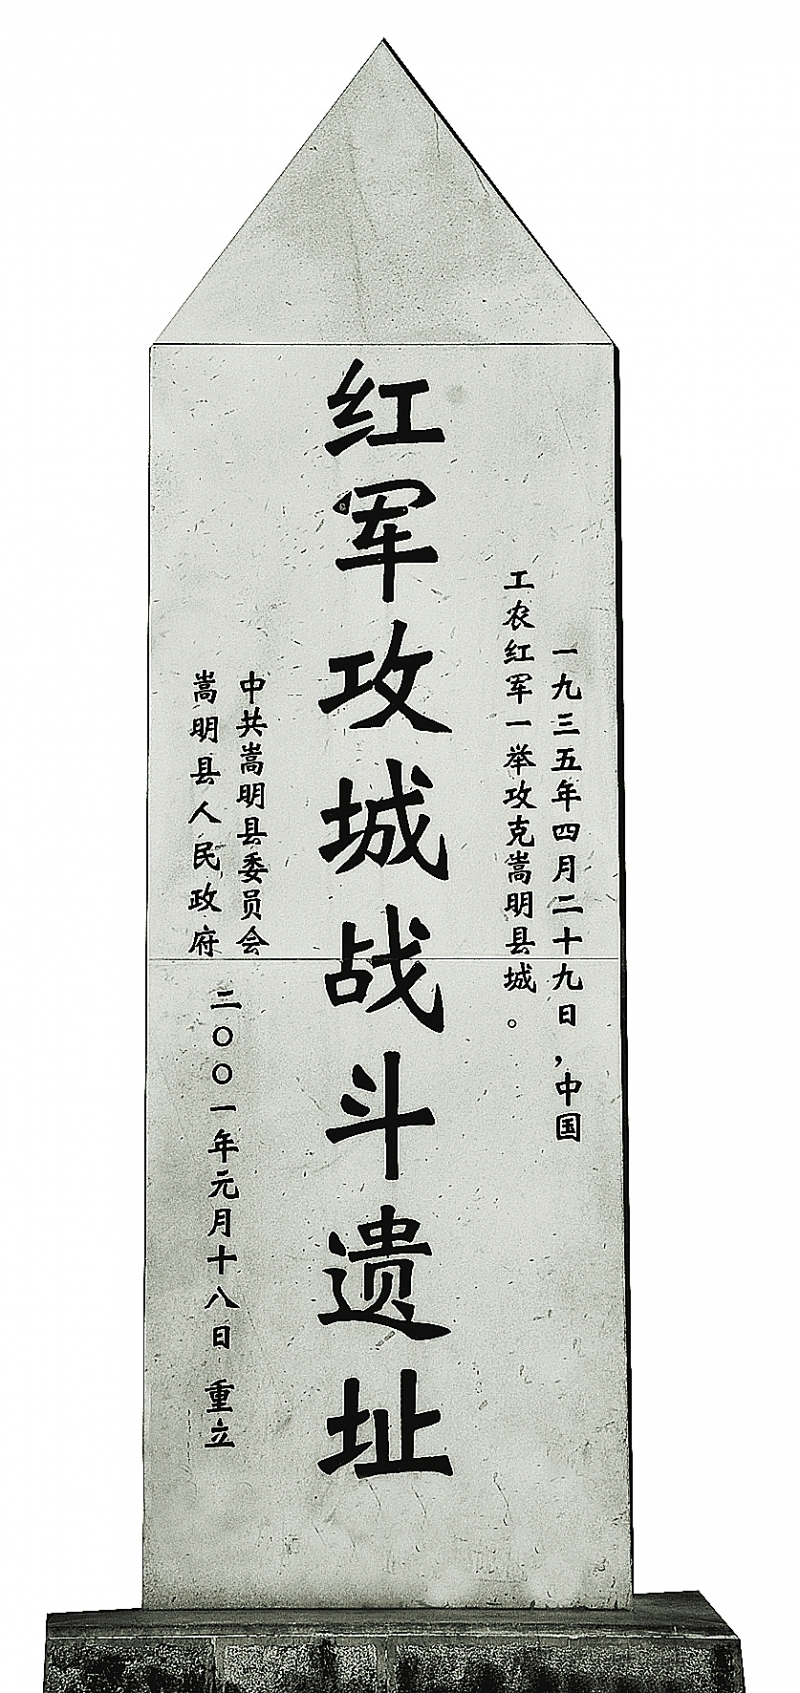 一九三五年四月二十九日，中国
工农红军一举攻克嵩明县城。
红军攻城战斗遗址
中共嵩明县委员会
嵩明县人民政府
二〇〇一年元月十八日 重立